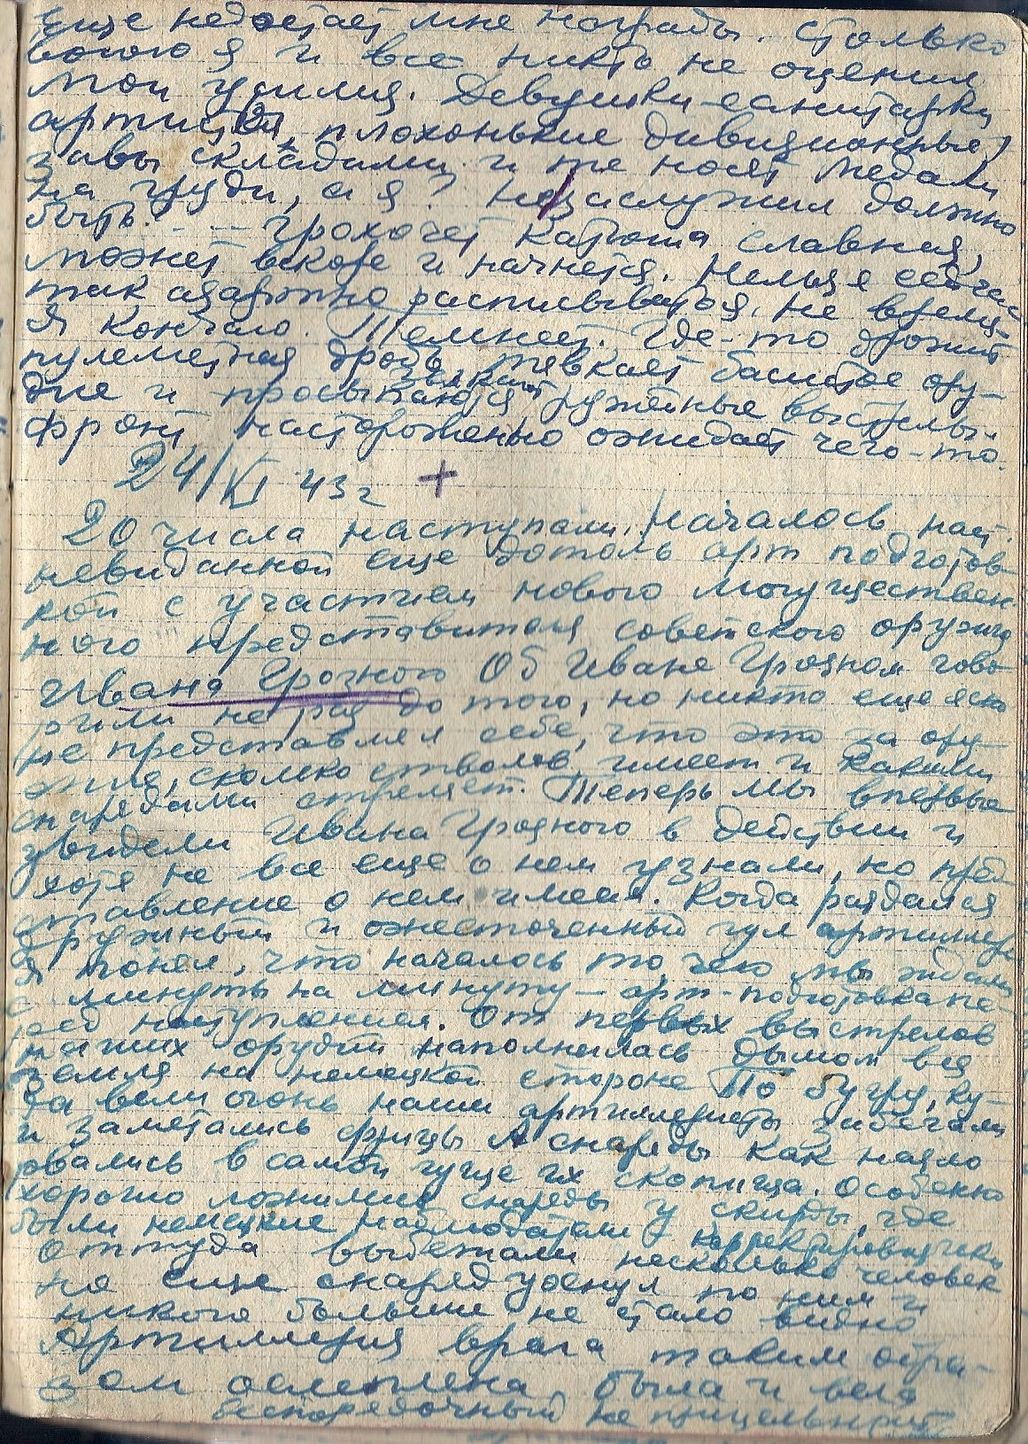 еще недостает мне награды. Столько
воюю я и все никто не оценил
мои усилия. Девушки-санитарки
артистки, плохонькие дивизионные,
завы складами и те носят медали
на груди, а я? Незаслужил должно
быть. . . . Грохочет Катюша славная,
может вскоре и начнется. Нельзя сейчас
так азартно расписываться, не время.
Я кончаю. Темнеет. Где-то дрожит
пулеметная дробь, тявкает басистое ору-
дие и просыпаются звонкие ружейные выстрелы.
Фронт настороженно ожидает чего-то.
24/XI 43 г +
20 числа наступали. Началось наст.
невиданной еще дотоль арт подготов-
кой с участием нового могуществен
ного представителя советского оружия
Ивана Грозного Об Иване Грозном гово
рили не раз до того, но никто еще ясно
не представлял себе, что это за ору-
жие, сколько стволов имеет и какими
снарядами стреляет. Теперь мы впервые
увидели Ивана Грозного в действии и
хотя не все еще о нем узнали, но пред-
ставление о нем имеем. Когда раздался
дружный и ожесточенный гул артиллерии
я понял, что началось то, чего мы ждали
с минуты на минуту – арт-подготовка пе-
ред наступлением. От первых выстрелов
наших орудий наполнилась дымом вся
земля на немецкой стороне По бугру, ку-
да вели огонь наши артиллеристы забегали
и заметались фрицы А снаряды как назло
рвались в самой гуще их скопища. Особенно
хорошо ложились снаряды у скирды, где
были немецкие наблюдатели корректировщики
Оттуда выбежали несколько человек
но еще снаряд ухнул по ним и
никого больше не стало видно
Артиллерия врага таким обра-
зом ослеплена была и вела
беспорядочный не прицельный